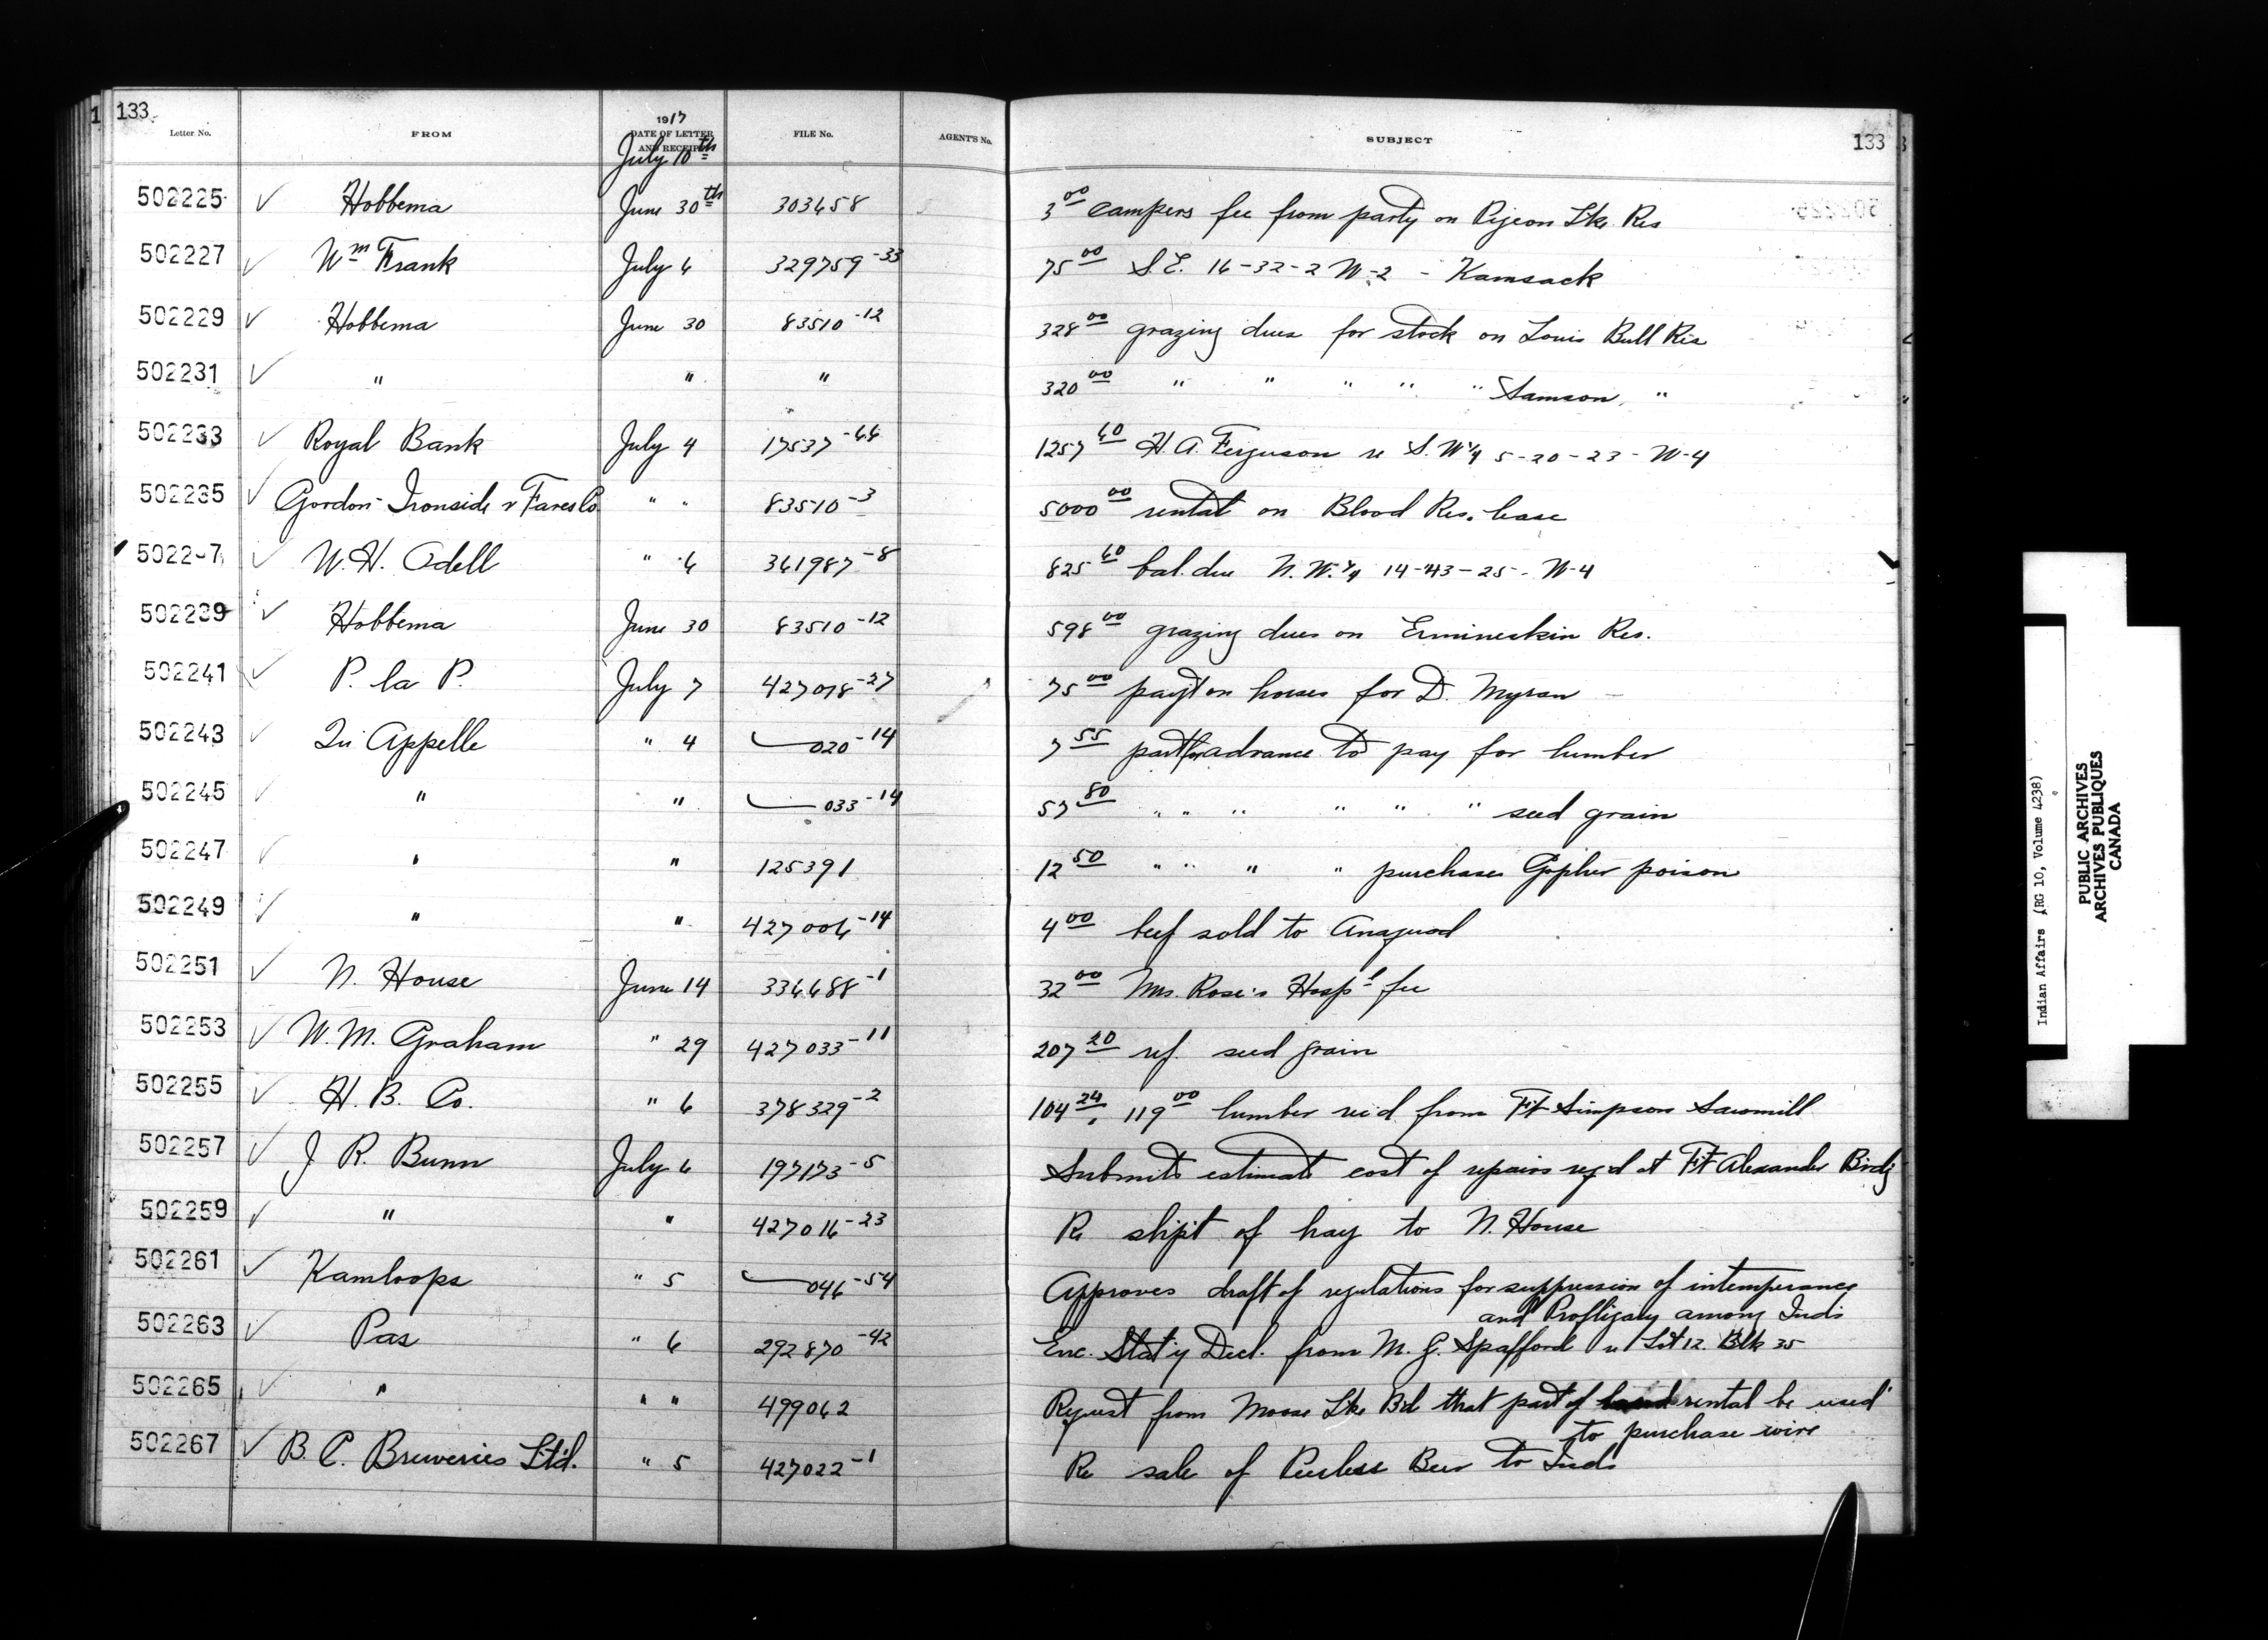 133
Letter No. FROM 1917 DATE OF LETTER AND RECEIPT FILE No. AGENT'S No. SUBJECT 133
July 10th
502225 ✓ Hobbema June 30th 303458 3 00 campers fee from party on Pigeon Lke Res
502227 ✓ Wm Frank July 6 329759-33 75 00 S.E. 16-32-2 W-2 - Kamsack
502229 ✓ Hobbema June 30 83510-12 328 00 grazing dues for stock on Louis Bull Res
502231 ✓ " " " 320 00 " " " " " Samson "
502233 ✓ Royal Bank July 4 17537-44 1257 60 H. A. Ferguson re S.W¼ 5-20-23-W-4
502235 ✓ Gordon Ironside & Fares Co " " 83510-3 5000 00 rental on Blood Res. lease
5022-7 ✓ W. H. Odell " 6 361987-8 825 60 bal. due N.W.¼ 14-43-25-W-4
502239 ✓ Hobbema June 30 83510-12 598 00 grazing dues on Ermineskin Res.
502241 ✓ P. la P. July 7 427018-27 75 00 payt on horses for D. Myran
502243 ✓ Qu Appelle " 4 020-14 7 55 part advance to pay for lumber
502245 ✓ " " 033-14 57 80 " " " " " " seed grain
502247 ✓ " " 125391 12 50 " " " " purchase Gopher poison
502249 ✓ " " 427006-14 4 00 beef sold to
502251 ✓ N. House June 14 334488-1 32 00 Mrs. Rose's Hospl fee
502253 ✓ W. M. Graham " 29 427033-11 207 20 ref. seed grain
502255 ✓ H. B. Co. " 6 378329-2 104 24, 119 00 lumber rec'd from Ft Simpson Sawmill
502257 ✓ J R. Bunn July 6 197173-5 Submits estimate cost of repairs req'd at Ft Alexander Brdg
502259 ✓ " " 427016-23 Re shipt of hay to N. House
502261 ✓ Kamloops " 5 046-54 Approves draft of regulations for suppression of intemperance
and Profligacy among Inds
502263 ✓ Pas " 6 292870-42 Enc. Stat'y Decl. from M. G. Spafford re Lot 12. Blk 35
502265 ✓ " " " 499062 Request from Moose Lke Bd that part of rental be used
to purchase wire
502267 ✓ B. C. Breweries Ltd. " 5 427022-1 Re sale of Peerless Beer to Inds
Indian Affairs (RG 10, Volume 4238)
PUBLIC ARCHIVES
ARCHIVES PUBLIQUES
CANADA